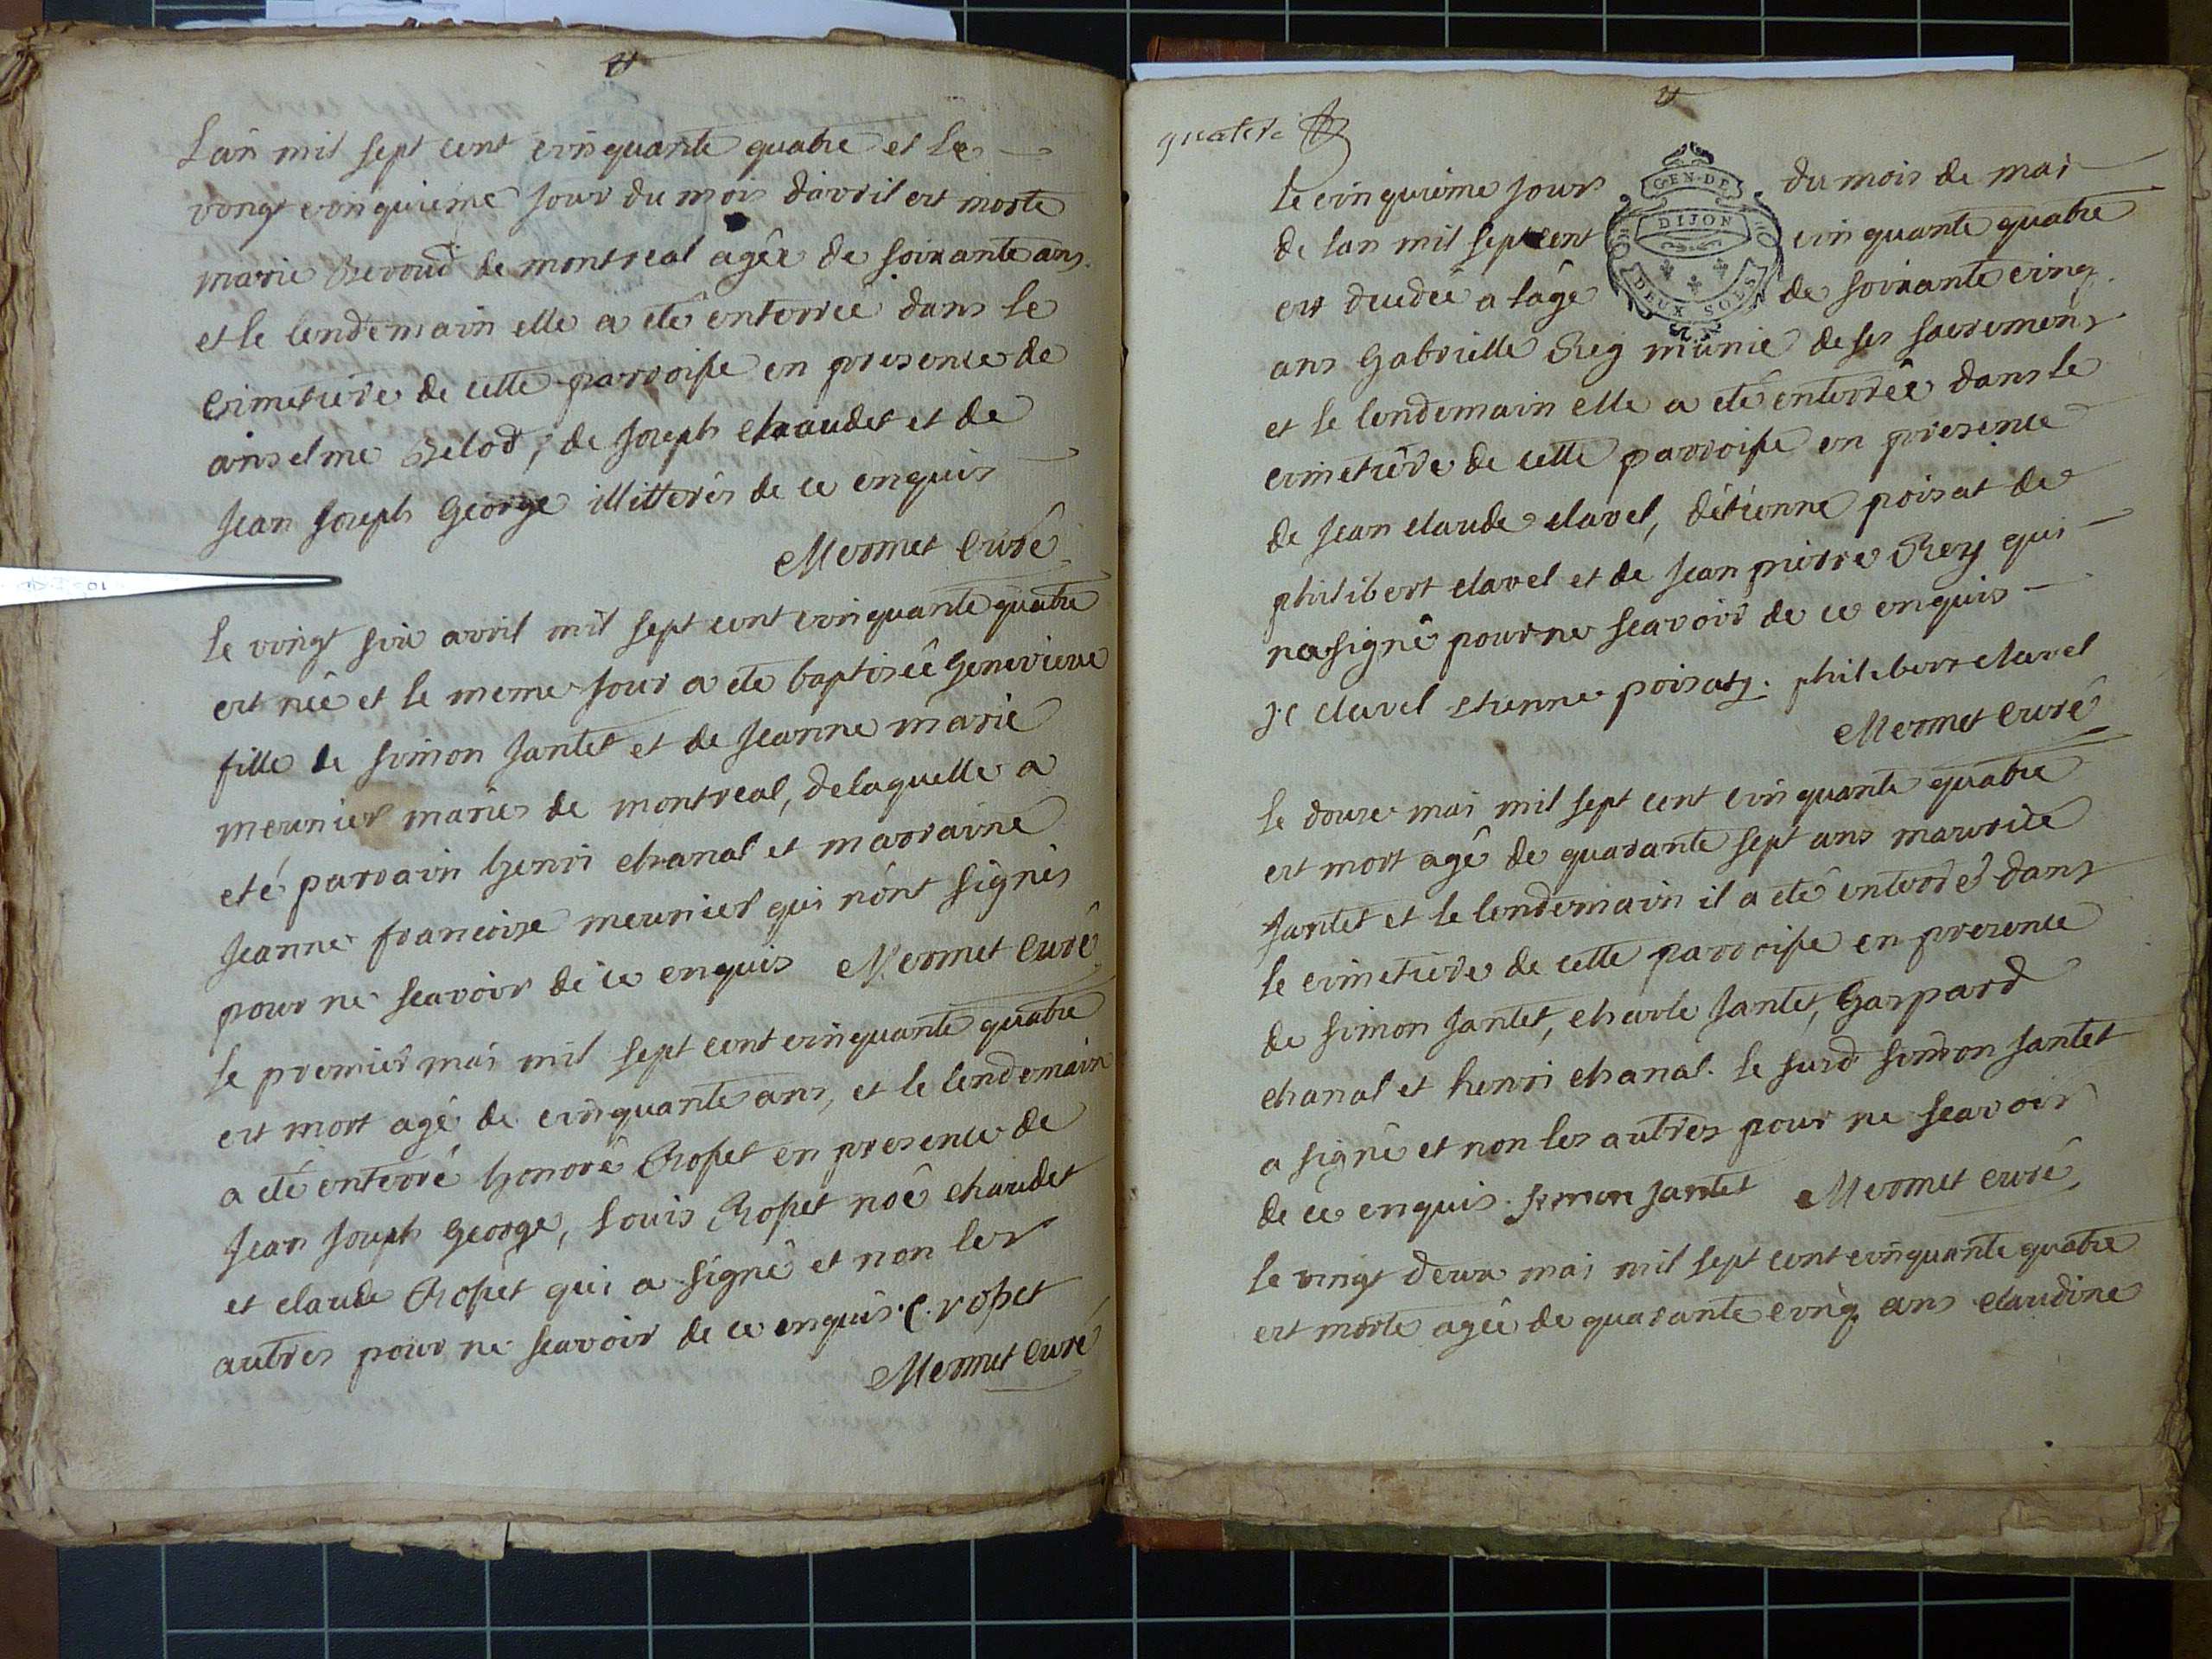 L'an mil sept cent cinquante quatre et le
vingt cinquieme jour du mois d'avril est morte
marie de montreal agée de soixante ans
et le lendemain elle a eté enterrée dans le
cimetiere de cette parroisse en presence de
anselme Belod, de Joseph chaudet et de
Jean Joseph George illitterés de ce enquis
Mermet curé
le vingt six avril mil sept cent cinquante quatre
est née et le meme jour a ete baptisée Genevieve
fille de simon Jantet et de Jeanne marie
meunier mariés de montreal, delaquelle a
eté parrain henri chanal et marraine
Jeanne francoise meunier qui n'ont signés
pour ne scavoir de ce enquis Mermet curé
le premier mai mil sept cent cinquante quatre
est mort agé de cinquante ans, et le lendemain
a eté enterré honoré Rosset en presence de
Jean Joseph George, Louis Rosset noé chaudet
et claude Rosset qui a signé et non les
autres pour ne scavoir de ce enquis. C. rosset
Mermet curé
le cinquieme jour du mois de mai
de lan mil sept cent cinquante quatre
est decedée a l'âge de soixante cinq
ans Gabrielle Rey munie de ses sacremens
et le lendemain elle a eté enterrée dans le
cimetière de cette parroisse en presence
de Jean claude clavel, d'étienne poisat de
philibert clavel et de Jean pierre Rey qui
na signé pour ne scavoir de ce enquis
J C clavel etienne poisat. philibert clavel
Mermet curé
le douze mai mil sept cent cinquante quatre
est mort agé de quarante sept ans maurice
Jantet et le lendemain il a eté enterré dans
le cimetiere de cette parroisse en presence
de simon Jantet, charle Jantet, Gaspard
chanal et henri chanal. le susd simon Jantet
a signé et non les autres pour ne scavoir
de ce enquis. simon jantet Mermet curé
le vingt deux mai mil sept cent cinquante quatre
est morte agée de quarante cinq ans claudine
GEN·DE
DIJON
DEUX SOLS